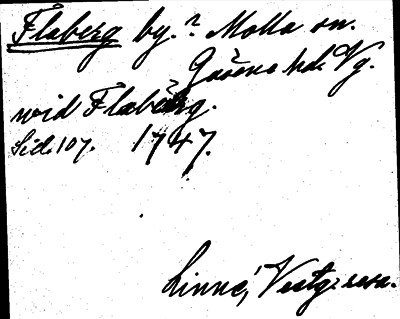 Flaberg by.? Molla sn.
Gåsene hd. Vg.
wid Flaberg.
Sid. 107. 1747.
Linné, Vestg. resa.